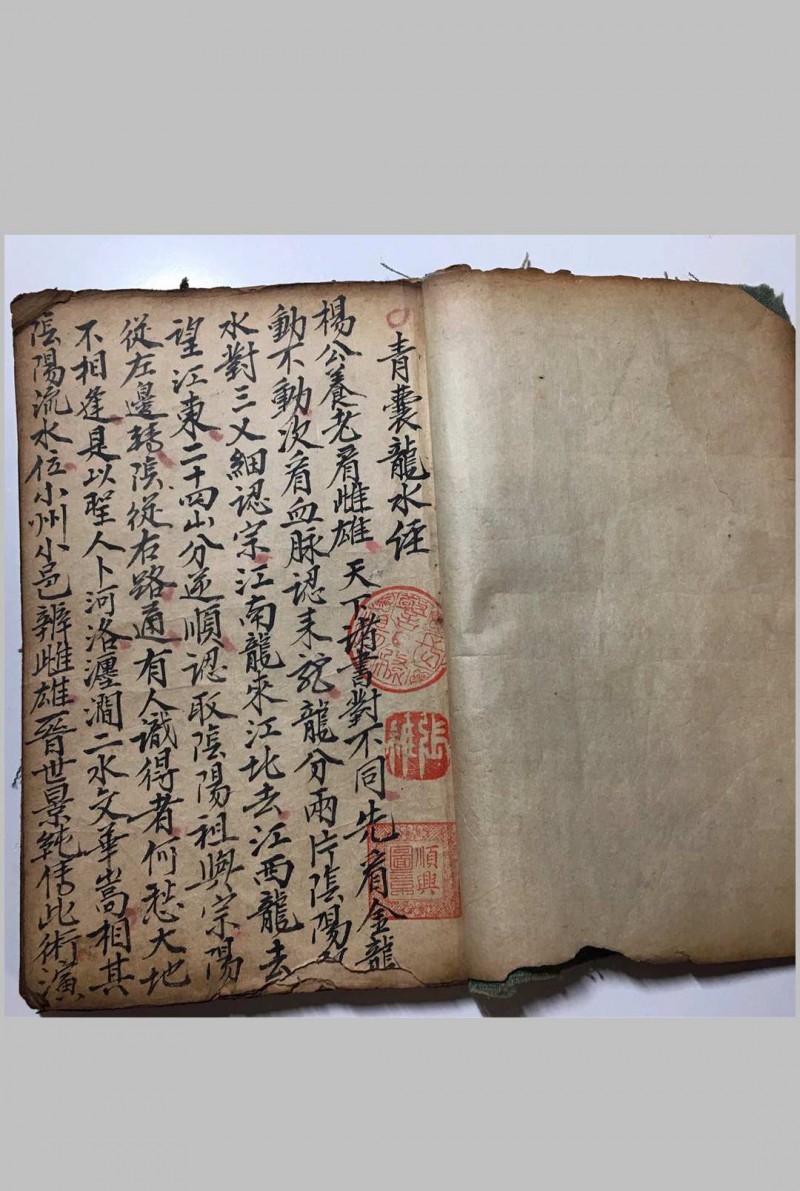 青囊龍水经
楊公養老看雌雄天下諸書對不同先看金龍
動不動次看血脉認来龍龍分兩片陰陽
水對三叉細認宗江南龍來江北去江西龍去
望江東二十四山分逆順認取陰陽祖與宗陽
從左邊轉陰從右路通有人識得者何愁大地
不相逢是以聖人卜河洛瀍澗二水文華嵩相其
陰陽流水位小州小邑辨雌雄晉世景純傳此術演
順興
圖書